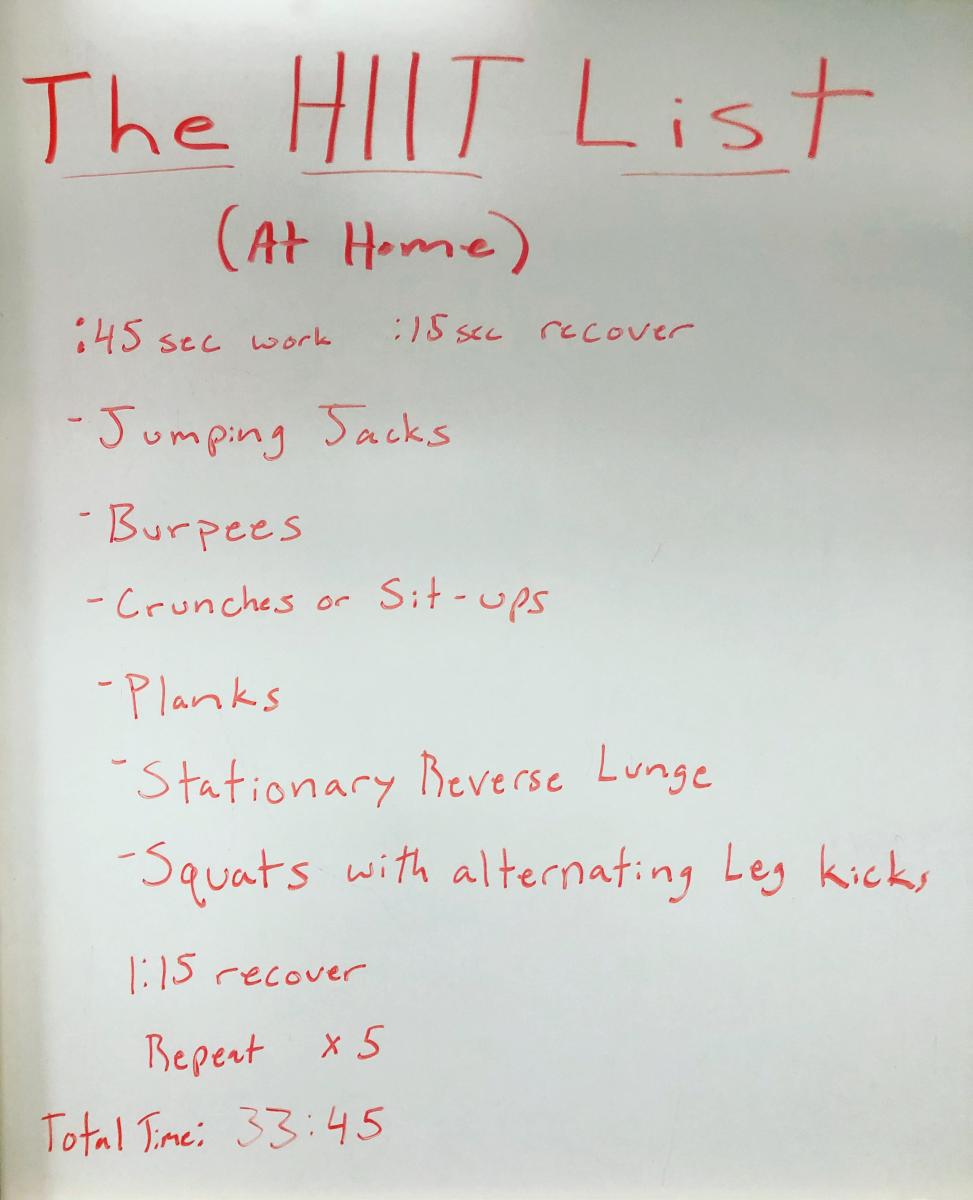 The HIIT List
(At Home)
:45 sec work :15 sec recover
- Jumping Jacks
- Burpees
- Crunches or Sit-ups
- Planks
- Stationary Reverse Lunge
- Squats with alternating Leg kicks
1:15 recover
Repeat x 5
Total Time: 33:45